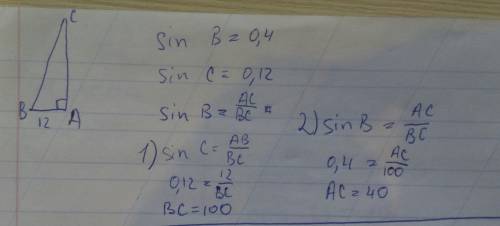 C
B
A
12
sin B = 0,4
sin C = 0,12
sin B = AC/BC
1) sin C = AB/BC
0,12 = 12/BC
BC = 100
2) sin B = AC/BC
0,4 = AC/100
AC = 40